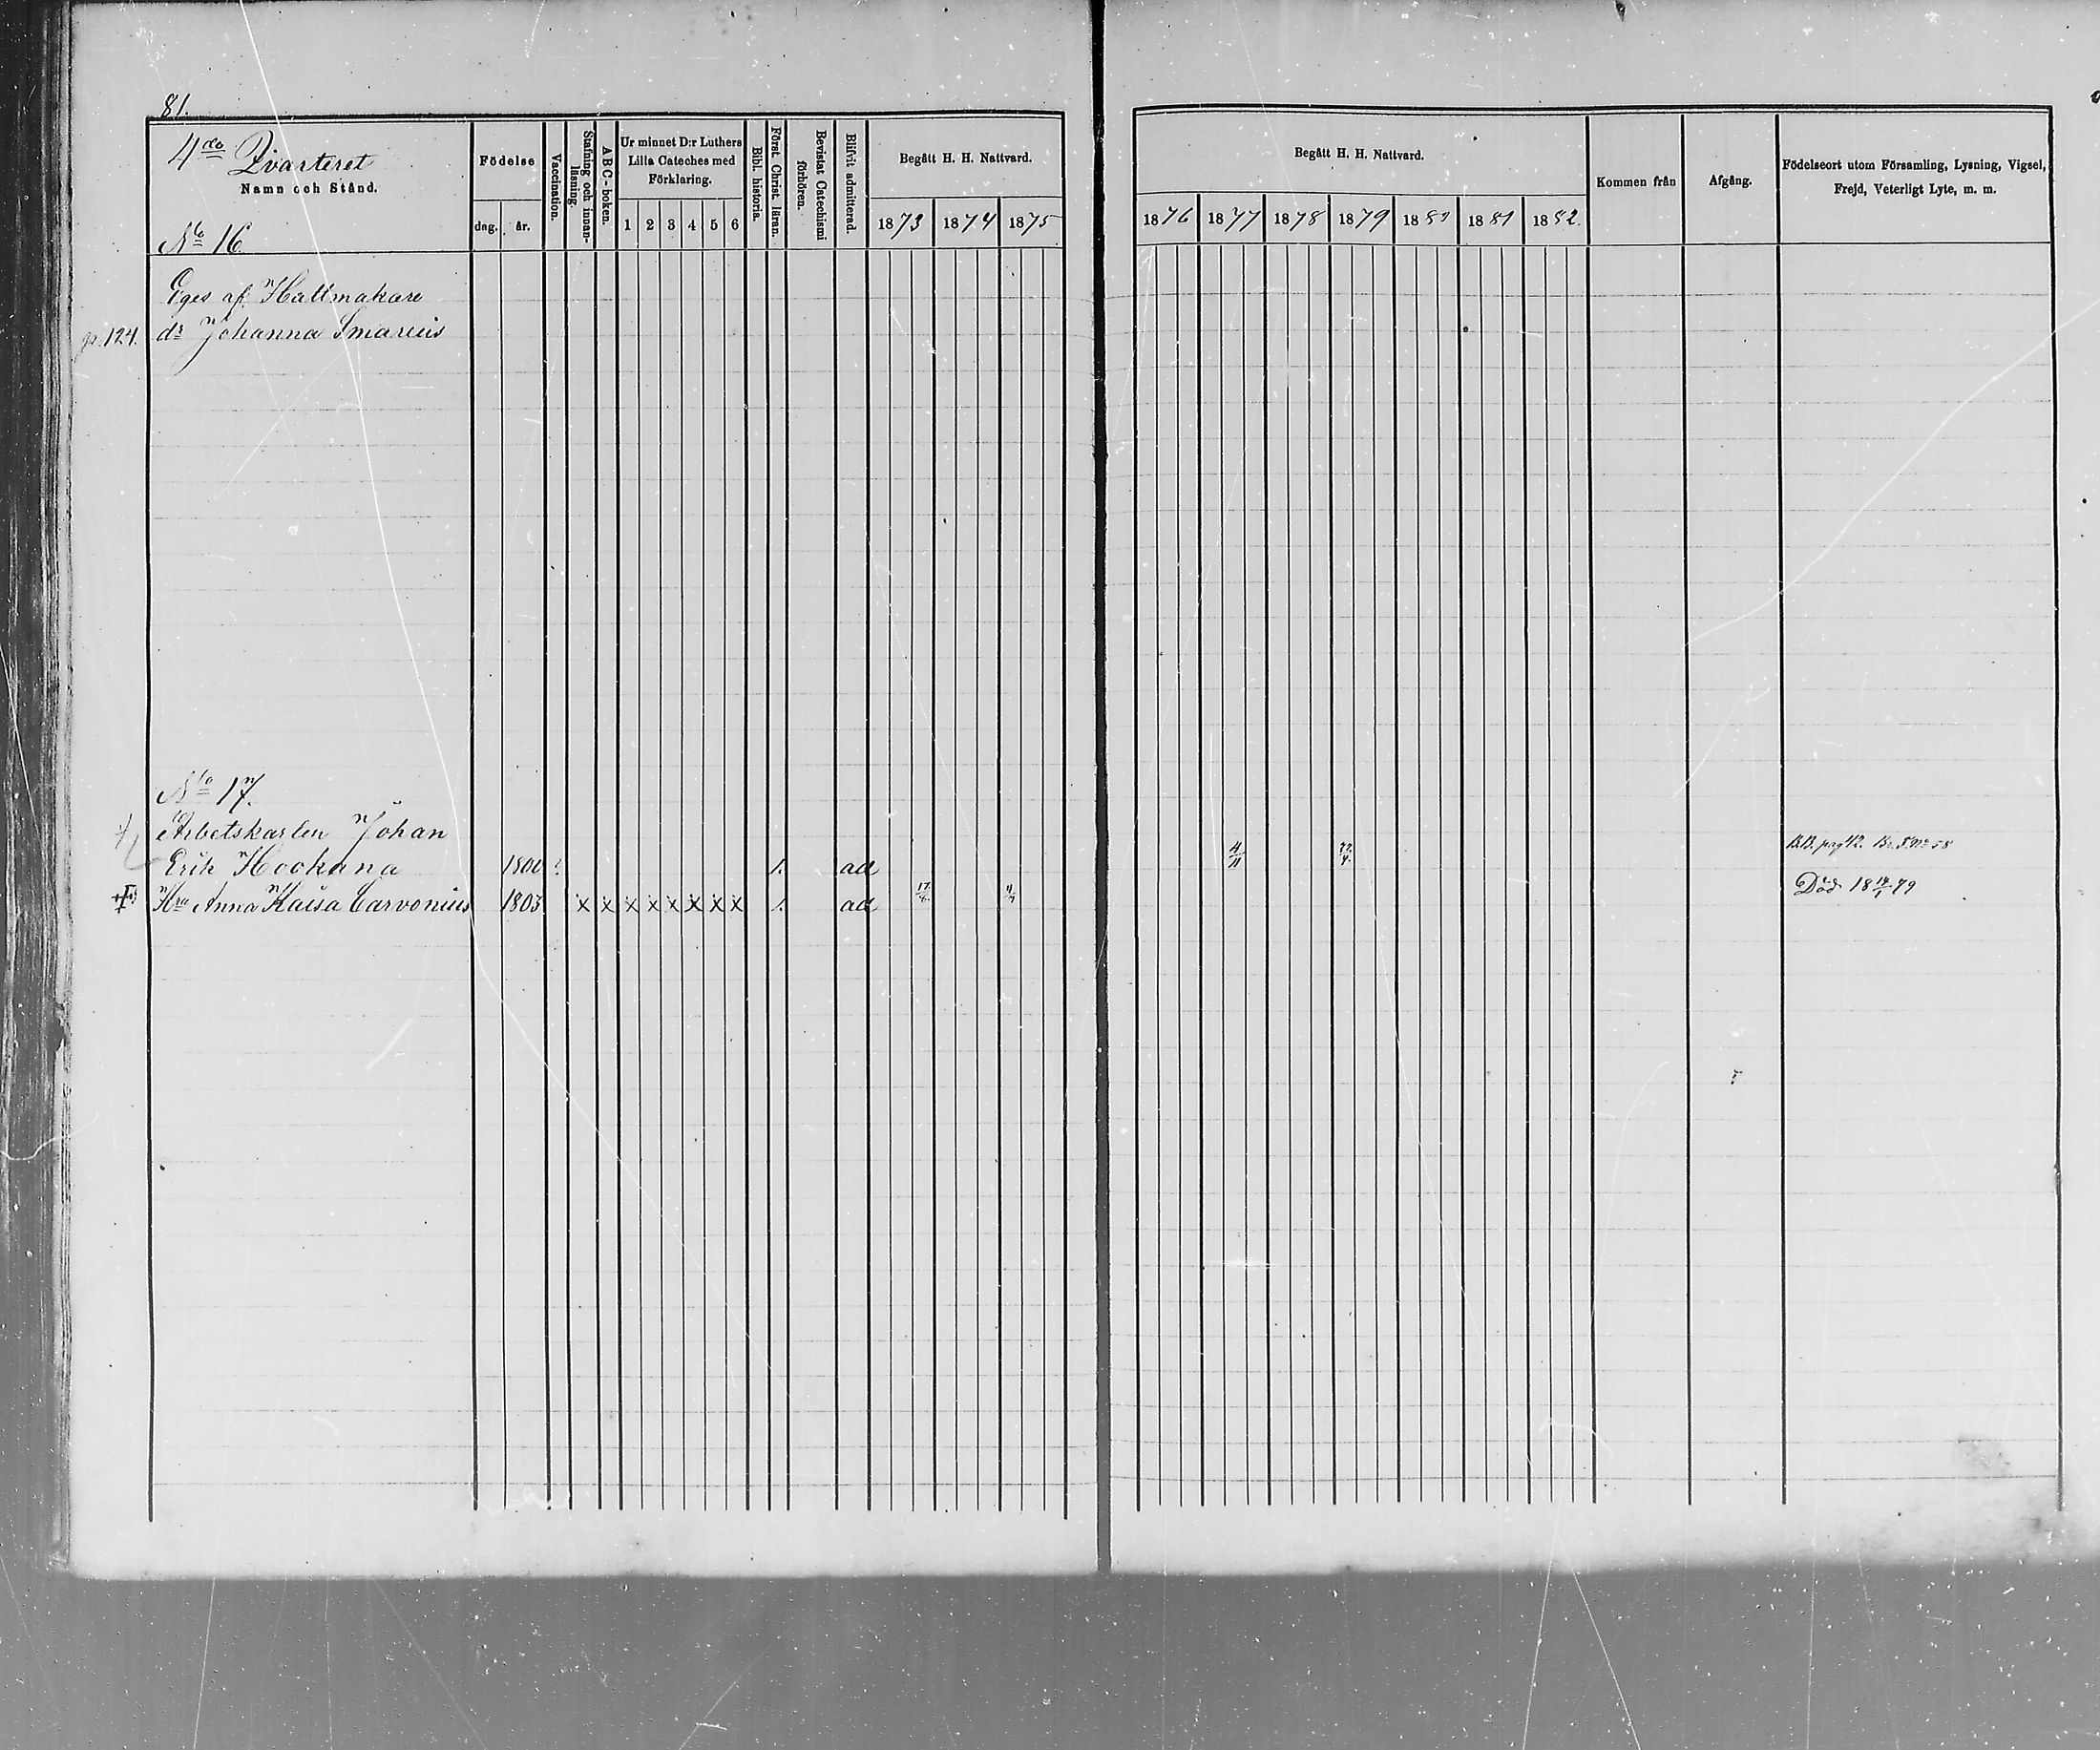 81.
4de Qvarteret
Namn och Stånd.
No 16.
Födelse
dag. år.
Vaccination.
Stafning och innanläsning.
A B C - boken.
Ur minnet D:r Luthers
Lilla Cateches med
Förklaring.
1 2 3 4 5 6
Bibl. historia.
Först. Christ. läran.
Bevistat Catechismi förhören.
Blifvit admitterad.
Begått H. H. Nattvard.
1873 1874 1875
Begått H. H. Nattvard.
1876 1877 1878 1879 1880 1881 1882.
Kommen från
Afgång.
Födelseort utom Församling, Lysning, Vigsel,
Frejd, Veterligt Lyte, m. m.
Eges af Hattmakare
p. 124. dr Johanna Smarius
No 17.
Arbetskarlen Johan
Erik Hookana 1800 1. ad 4/11
Hru Anna Kaisa Carvonius 1803 x x x x x x x x 1. ad 17/6 Död 18 14/1 79